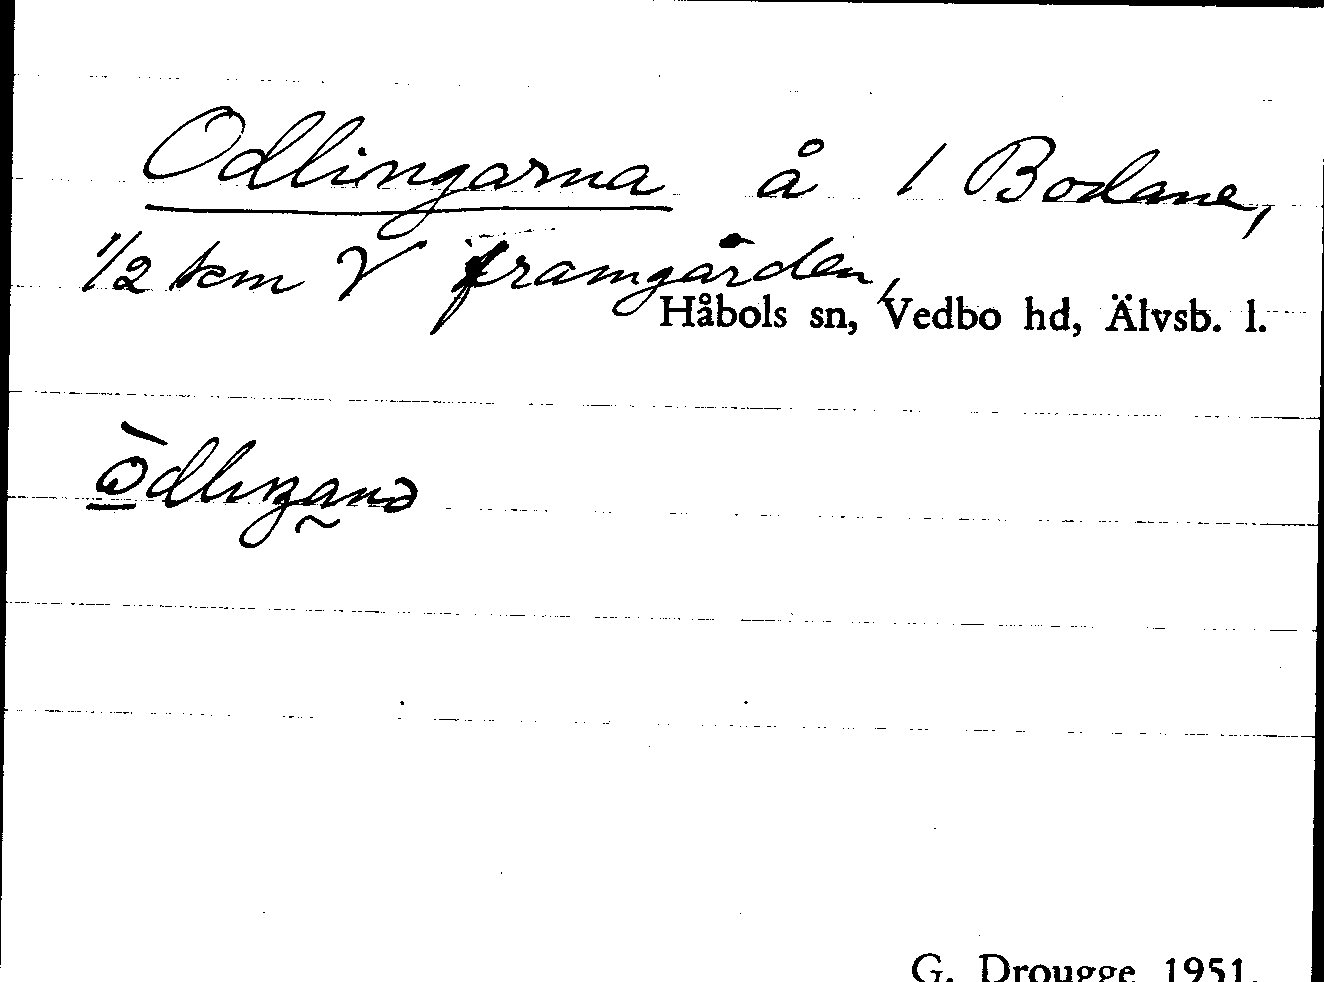 Odlingarna å 1 Bodane,
1/2 km V framgården,
Håbols sn, Vedbo hd, Älvsb. l.
G. Drougge 1951.